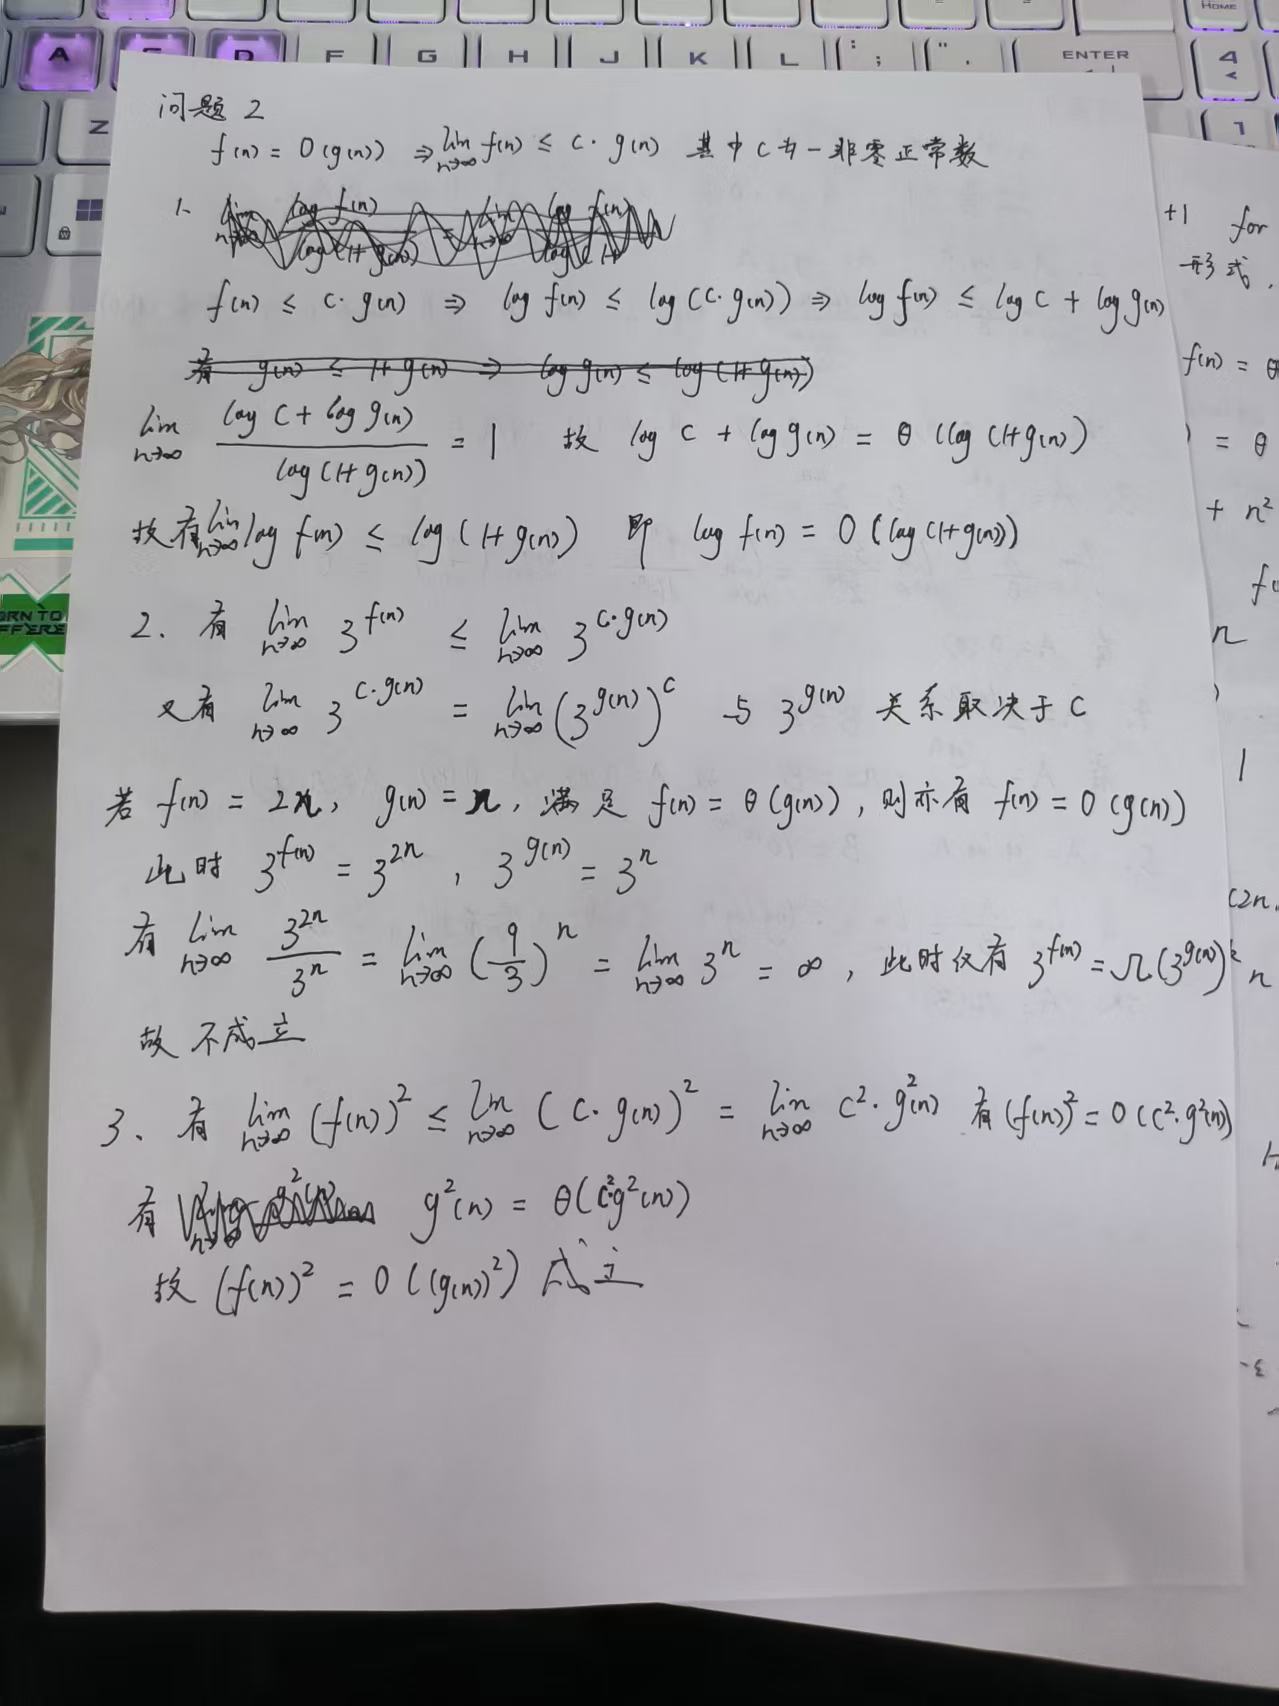 A S D F G H J K L : ; " ' ENTER 4
HOME
Z
1
问题2
f(n) = O(g(n)) ⇒ lim n→∞ f(n) ≤ c · g(n) 其中 c 为一非零正常数
1.
f(n) ≤ c · g(n) ⇒ log f(n) ≤ log (c · g(n)) ⇒ log f(n) ≤ log c + log g(n)
有 g(n) ≤ 1+g(n) ⇒ log g(n) ≤ log (1+g(n))
lim n→∞ (log c + log g(n)) / (log (1+g(n))) = 1 故 log c + log g(n) = θ (log (1+g(n))
故有 lim n→∞ log f(n) ≤ log (1+g(n)) 即 log f(n) = O (log (1+g(n))
2. 有 lim n→∞ 3^f(n) ≤ lim n→∞ 3^c·g(n)
又有 lim n→∞ 3^c·g(n) = lim n→∞ (3^g(n))^c 与 3^g(n) 关系取决于 c
若 f(n) = 2n, g(n) = n, 满足 f(n) = θ (g(n)), 则亦有 f(n) = O (g(n))
此时 3^f(n) = 3^2n , 3^g(n) = 3^n
有 lim n→∞ 3^2n / 3^n = lim n→∞ (9/3)^n = lim n→∞ 3^n = ∞ , 此时仅有 3^f(n) = Ω (3^g(n))
故不成立
3. 有 lim n→∞ (f(n))² ≤ lim n→∞ (c · g(n))² = lim n→∞ c² · g²(n) 有 (f(n))² = O (c² · g²(n))
有 g²(n) = θ (c²g²(n))
故 (f(n))² = O ((g(n))²) 成立
+1 for
形式 .
f(n) = θ
) = θ
+ n²
n
1
(2n
n